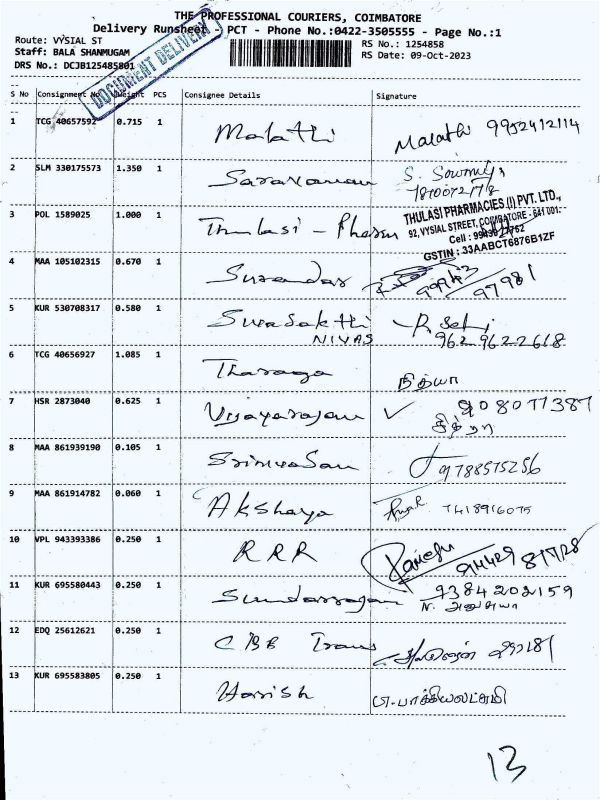 THE PROFESSIONAL COURIERS, COIMBATORE
Delivery Runsheet - PCT - Phone No.:0422-3505555 - Page No.:1
Route: VYSIAL ST
RS No.: 1254858
Staff: BALA SHANMUGAM
RS Date: 09-Oct-2023
DRS No.: DCJB125485801
DOCUMENT DELIVERY
S No Consignment No Weight PCS Consignee Details Signature
1 TCG 40657592 0.715 1 Malathi Malathi 9952412114
2 SLM 330175573 1.350 1 Saravanan S. Sowmiya
3 POL 1589025 1.000 1 Thulasi - Pharm
THULASI PHARMACIES (I) PVT. LTD.,
92, VYSIAL STREET, COIMBATORE - 641 001.
Cell :
GSTIN : 33AABCT6876B1ZF
4 MAA 105102315 0.670 1 Surendar 97981
5 KUR 530708317 0.580 1 Sivasakthi
NIVAS 9629622668
6 TCG 40656927 1.085 1 Tharaga நித்யா
7 HSR 2873040 0.625 1 Vijayarajan ✓ 908077387
சித்ரா
8 MAA 861939190 0.105 1 Srinivasan 9788575256
9 MAA 861914782 0.060 1 Akshaya 7418916075
10 VPL 943393386 0.250 1 RRR Ramesh
11 KUR 695580443 0.250 1 Sundarrajan 9384202159
12 EDQ 25612621 0.250 1 CBB Trans
13 KUR 695583805 0.250 1 Harish பாக்கியலட்சுமி
13